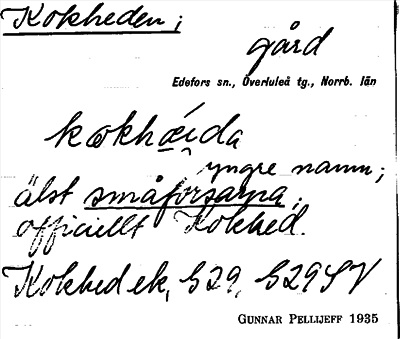 Kokheden;
gård
Edefors sn., Överluleå tg., Norrb. län
kokhæ̀ída
yngre namn;
älst småforsarna;
officiellt Kokhed.
Kokhed ek, G29, G29SV
GUNNAR PELLIJEFF 1935